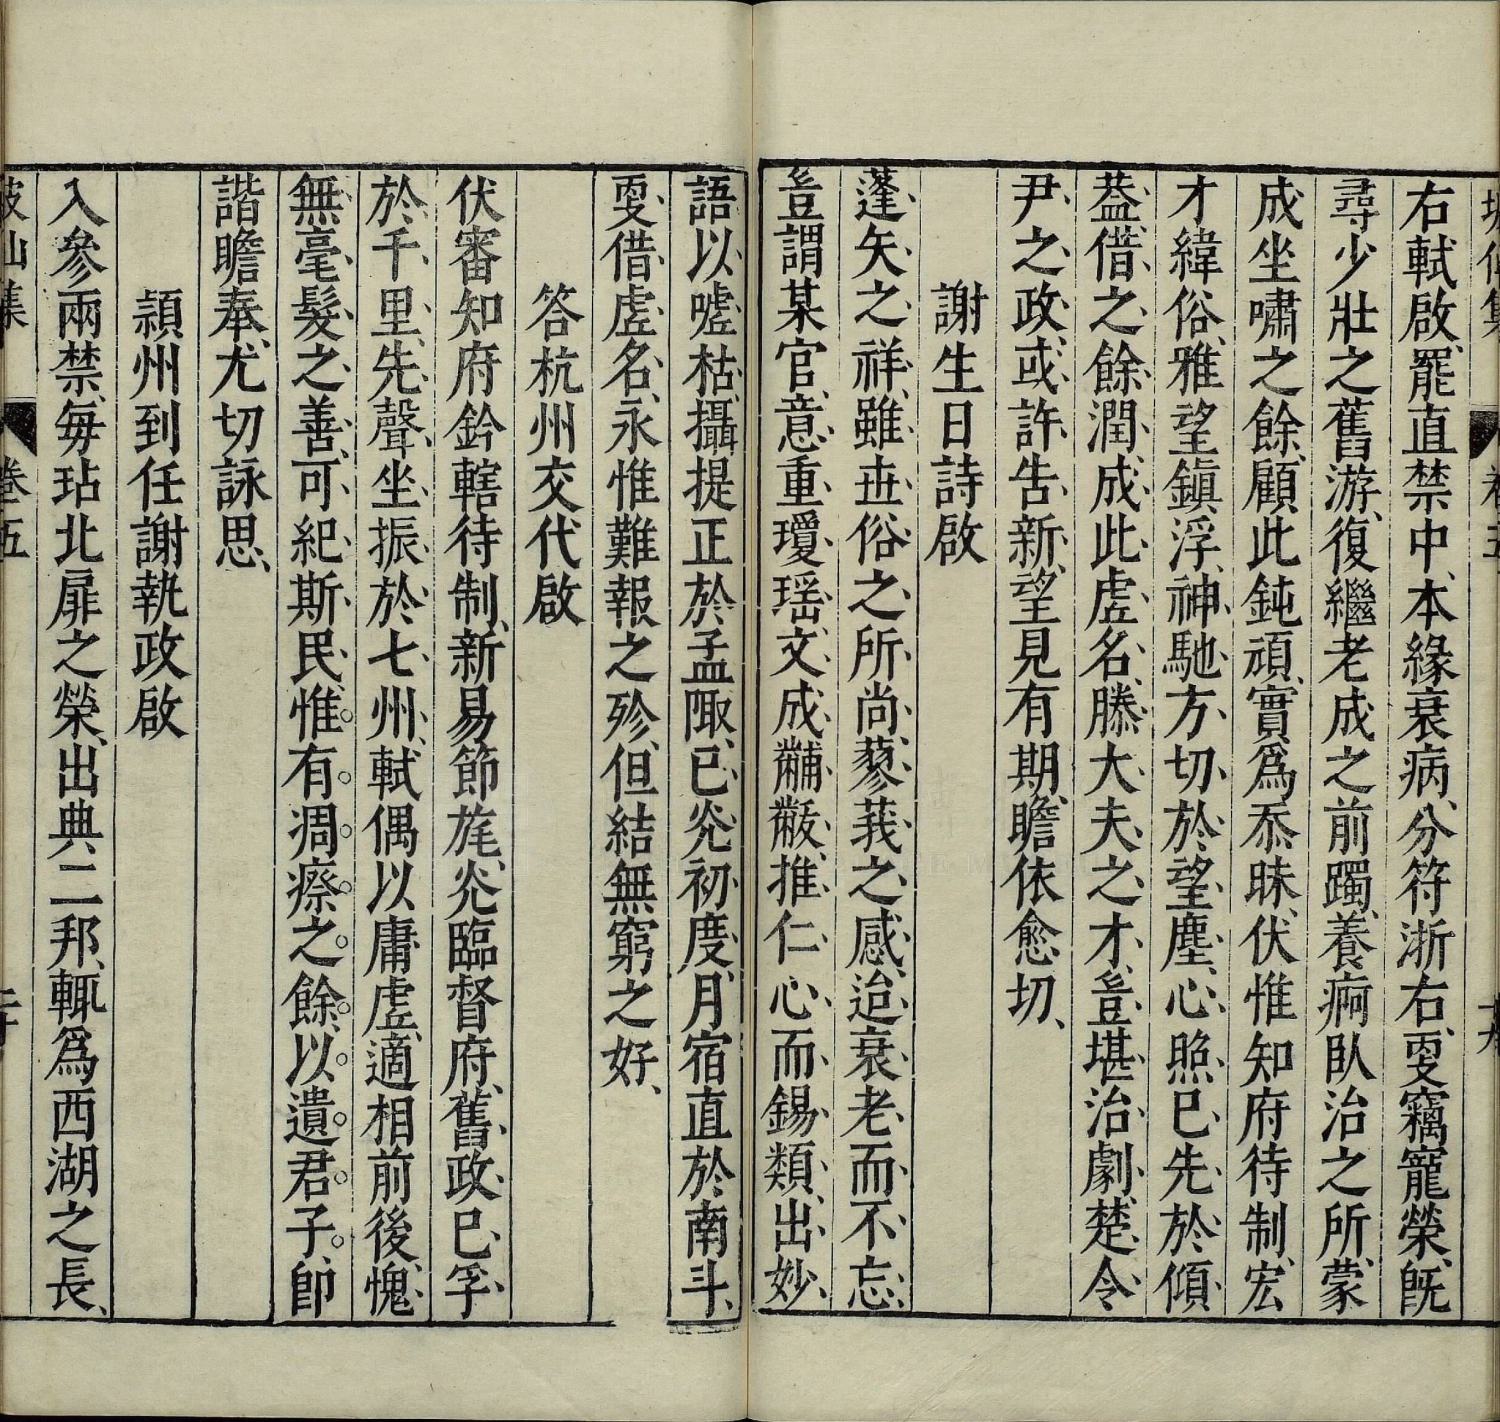 右軾啟罷直禁中本緣衰病分符浙右叨竊寵榮既
尋少壯之舊游復繼老成之前躅養痾臥治之所蒙
成坐嘯之餘顧此鈍頑實爲忝昧伏惟知府待制宏
才緯俗雅望鎮浮神馳方切於望塵心照已先於傾
葢借之餘潤成此虛名滕大夫之才豈堪治劇楚令
尹之政或許告新望見有期瞻依愈切
謝生日詩啟
蓬矢之祥雖世俗之所尚蓼莪之感迨衰老而不忘
豈謂某官意重瓊瑤文成黼黻推仁心而錫類出妙
語以噓枯攝提正於孟陬已光初度月宿直於南斗
更借虛名永惟難報之珍但結無窮之好
答杭州交代啟
伏審知府鈐轄待制新易節旄光臨督府舊政已孚
於千里先聲坐振於七州軾偶以庸虛適相前後愧
無毫髮之善可紀斯民惟有凋瘵之餘以遺君子卽
諧瞻奉尤切詠思
頴州到任謝執政啟
入參兩禁每玷北扉之榮出典二邦輒爲西湖之長
卷五